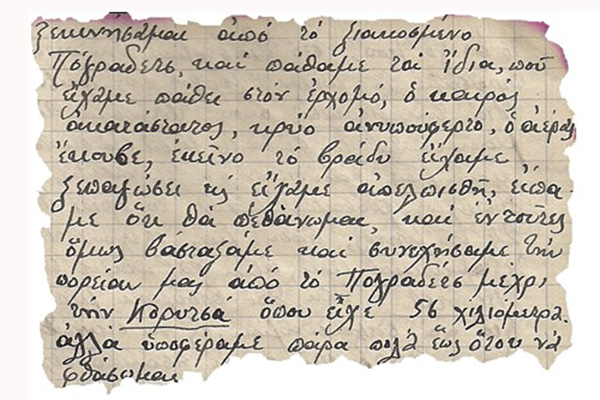 ξεκινήσαμαι ἀπό τό ξιακοσμένο
Πόγραδετς, καί πάθαμε τά ἴδια, πού
εἴχαμε πάθει στον ἐρχομό, ὁ καιρός
ἀκατάστατος, κρύο ἀνυπόφερτο, ὁ ἀέρας
ἔκουβε, ἐκεῖνο τό βράδυ εἴχαμε
ξεπαγώσει κς εἴχαμε ἀπελπισθῆ, εἴπα
με ὅτι θά πεθάνωμαι, καί ἐν τούτοις
ὅμως βάσταξαμε καί συνεχήσαμε τήν
πορείαν μας ἀπό τό Πόγραδέτς μέχρι
τήν Κορυτσά ὅπου εἶχε 56 χιλιόμετρα.
ἀλλά ὑποφέραμε πάρα πολά ἕως ὅτου νά
φθάσωμαι